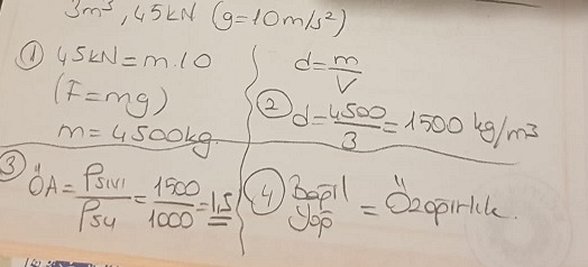 3m³, 45kN (g=10m/s²)
① 45kN=m.10
(F=mg)
m=4500kg
d=m/V
② d=4500/3=1500 kg/m³
③ ÖA=ρsıvı/ρsu=1500/1000=1,5
④ Bağıl Yoğ = Özağırlık.